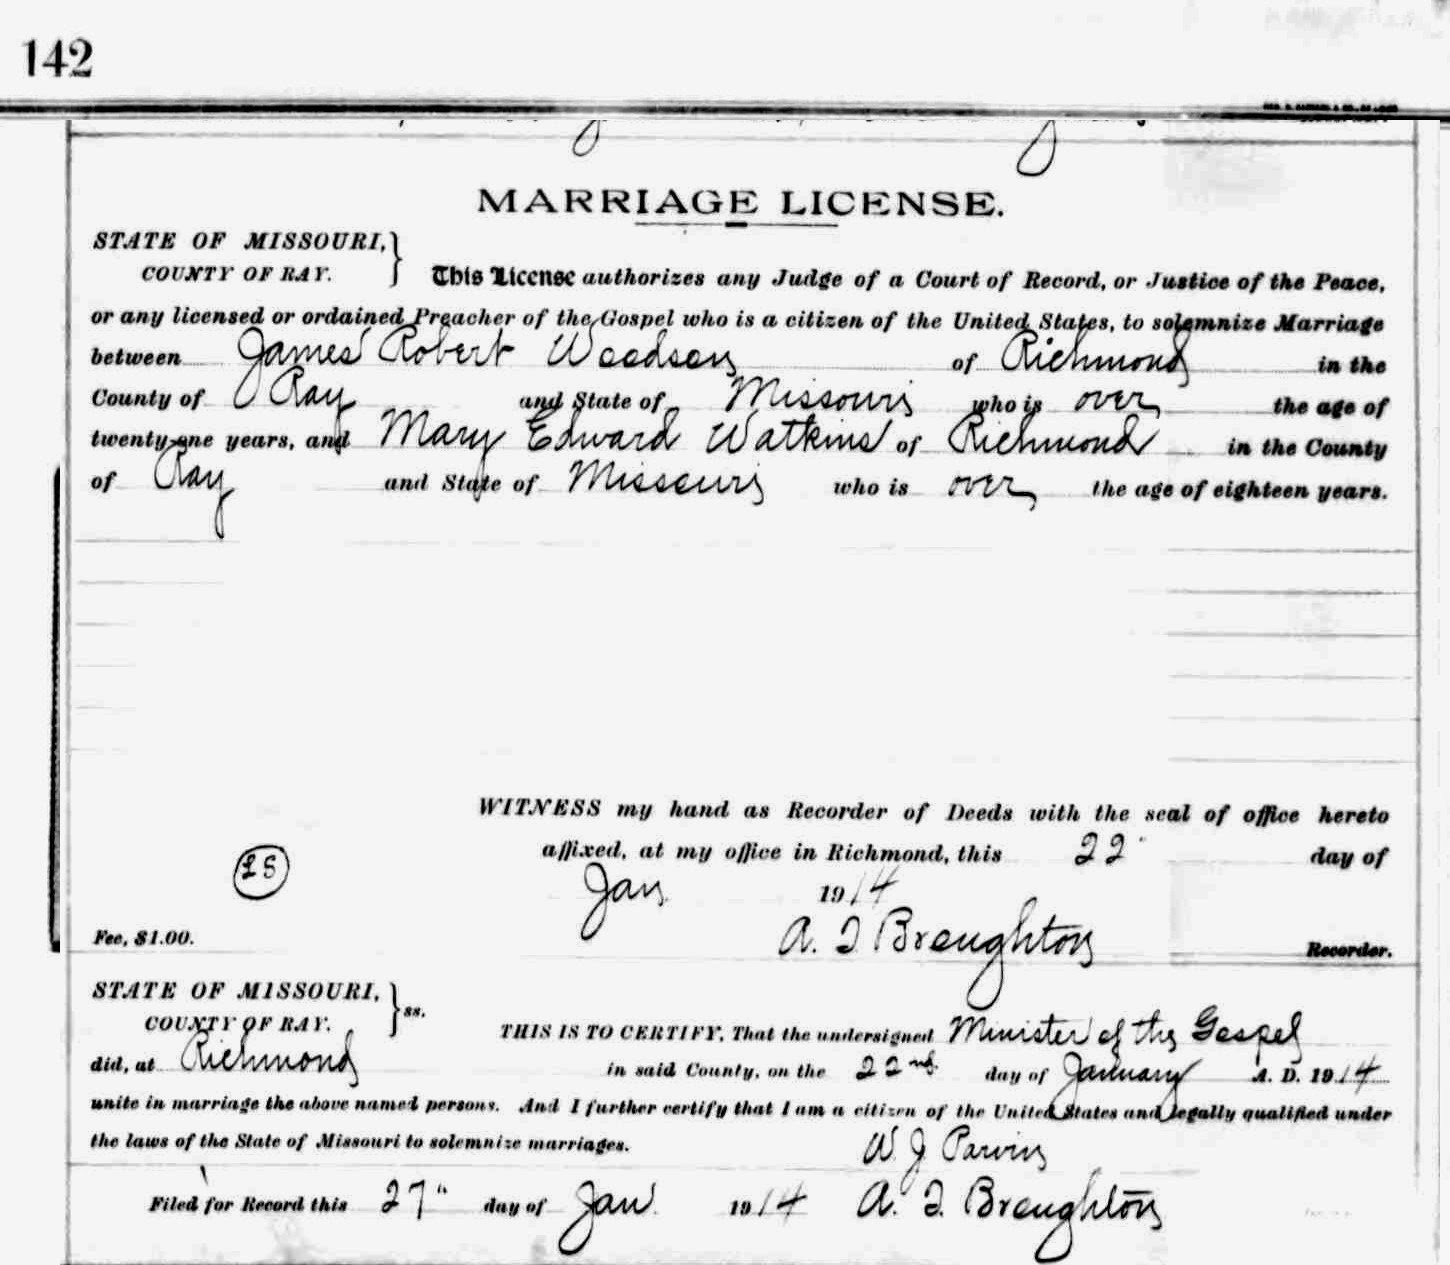 142
MARRIAGE LICENSE.
STATE OF MISSOURI,
COUNTY OF RAY.
This License authorizes any Judge of a Court of Record, or Justice of the Peace,
or any licensed or ordained Preacher of the Gospel who is a citizen of the United States, to solemnize Marriage
between James Robert Woodson of Richmond in the
County of Ray and State of Missouri who is over the age of
twenty-one years, and Mary Edward Watkins of Richmond in the County
of Ray and State of Missouri who is over the age of eighteen years.
WITNESS my hand as Recorder of Deeds with the seal of office hereto
affixed, at my office in Richmond, this 22 day of
LS
Jan 1914
Fee, $1.00.
A. T Broughton Recorder.
STATE OF MISSOURI,
COUNTY OF RAY. ss.
THIS IS TO CERTIFY, That the undersigned Minister of the Gospel
did, at Richmond in said County, on the 22nd day of January A. D. 1914
unite in marriage the above named persons. And I further certify that I am a citizen of the United States and legally qualified under
the laws of the State of Missouri to solemnize marriages.
W J Parvin
Filed for Record this 27" day of Jan 1914 A. T. Broughton